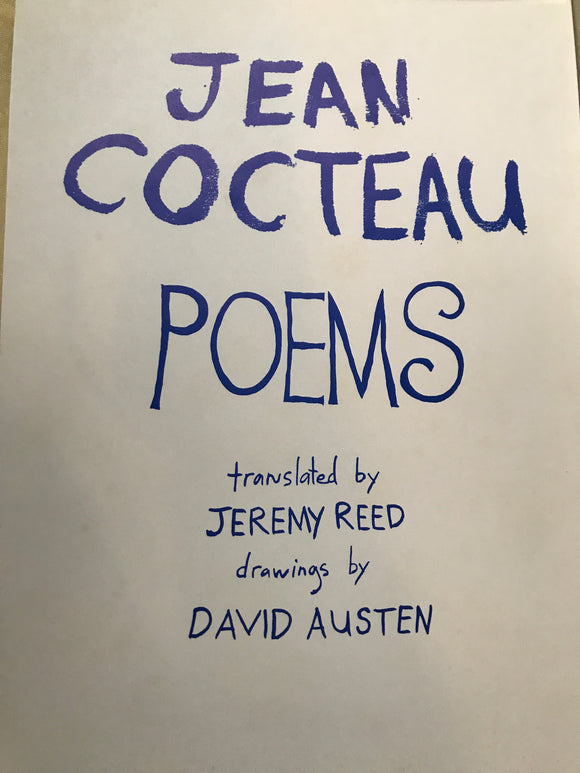 JEAN
COCTEAU
POEMS
translated by
JEREMY REED
drawings by
DAVID AUSTEN